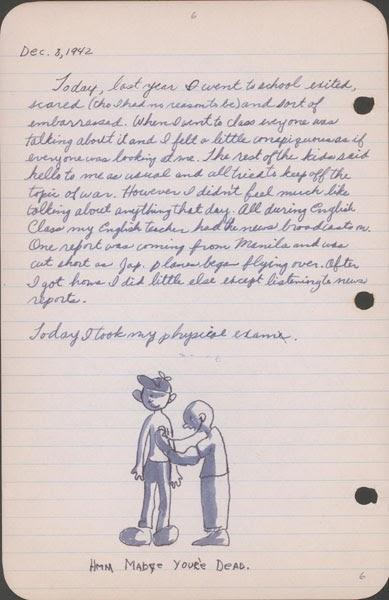 6
Dec. 8, 1942
Today, last year I went to school exited,
scared (tho I had no reason to be) and sort of
embarrassed. When I went to class everyone was
talking about it and I felt a little conspiquous as if
everyone was looking at me. The rest of the kids said
hello to me as usual and all tried to keep off the
topic of war. However I didn't feel much like
talking about anything that day. All during English
Class my English teacher had the news broadcasts on.
One report was coming from Manila and was
cut short as Jap. planes began flying over. After
I got home I did little else except listening to news
reports.
Today I took my physical exams.
HMM MABYE YOU'RE DEAD.
6